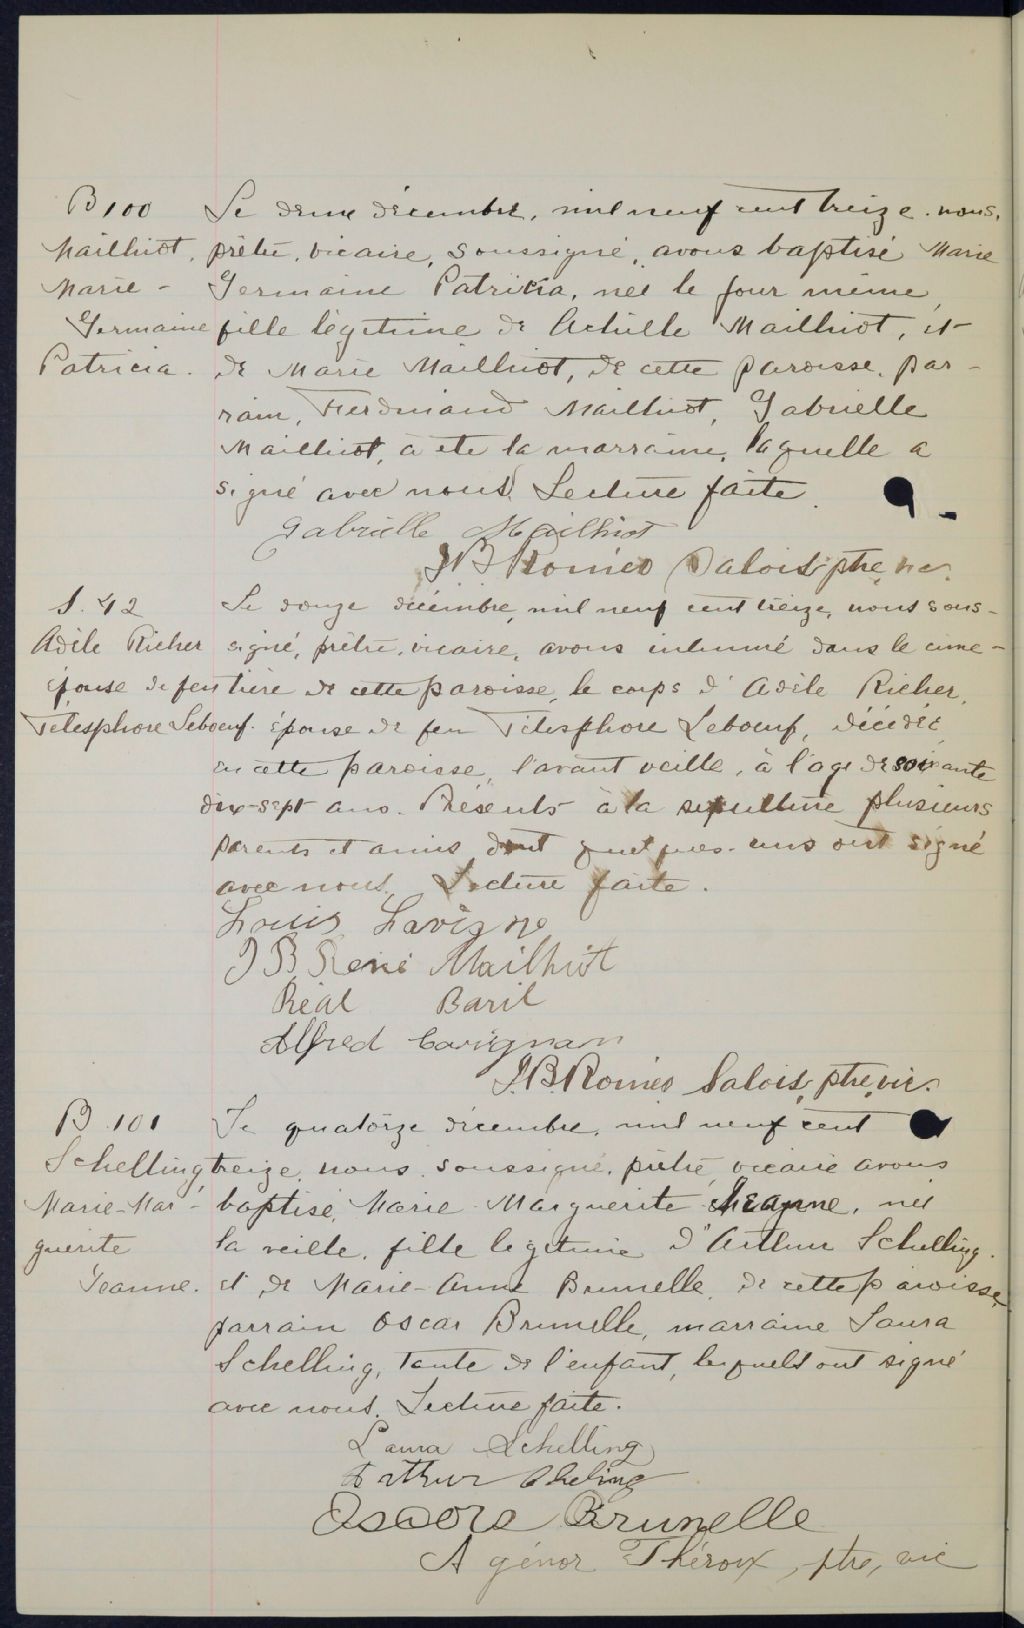 B 100
Mailhiot,
Marie -
Germaine
Patricia.
Le deux décembre, mil neuf cent treize. nous,
prêtre, vicaire, soussigné, avons baptisé Marie
Germaine Patricia, née le jour même,
fille légitime de Achille Mailhiot, et
de Marie Mailhiot, de cette paroisse. par-
rain, Ferdinand Mailhiot, Gabrielle
Mailhiot, a été la marraine, laquelle a
signé avec nous. Lecture faite.
Gabrielle Mailhiot
J B Roméo Salois ptre, vic.
S. 42
Adèle Richer
épouse de feu
Télesphore Leboeuf.
Le douze décembre, mil neuf cent treize, nous sous-
signé, prêtre, vicaire, avons inhumé dans le cime-
tière de cette paroisse, le corps d'Adèle Richer,
épouse de feu Télesphore Leboeuf, décédée
en cette paroisse, l'avant veille, à l'age de soixante
dix-sept ans. Présents à la sépulture plusieurs
parents et amis dont quelques-uns ont signé
avec nous. Lecture faite.
Louis Lavigne
J B René Mailhiot
Réal Baril
Alfred Carignan
J.B. Roméo Salois, ptre, vic.
B. 101
Schelling,
Marie-Mar-
guerite
Jeanne.
Le quatorze décembre, mil neuf cent
treize, nous, soussigné, prêtre, vicaire avons
baptisé, Marie Marguerite Jeanne, née
la veille, fille légitime d'Arthur Schelling.
et de Marie-Anne Brunelle, de cette paroisse,
parrain Oscar Brunelle, marraine Laura
Schelling, tante de l'enfant, lesquels ont signé
avec nous. Lecture faite.
Laura Schelling
Arthur Cheling
Brunelle
Agénor Théroux, ptre, vic